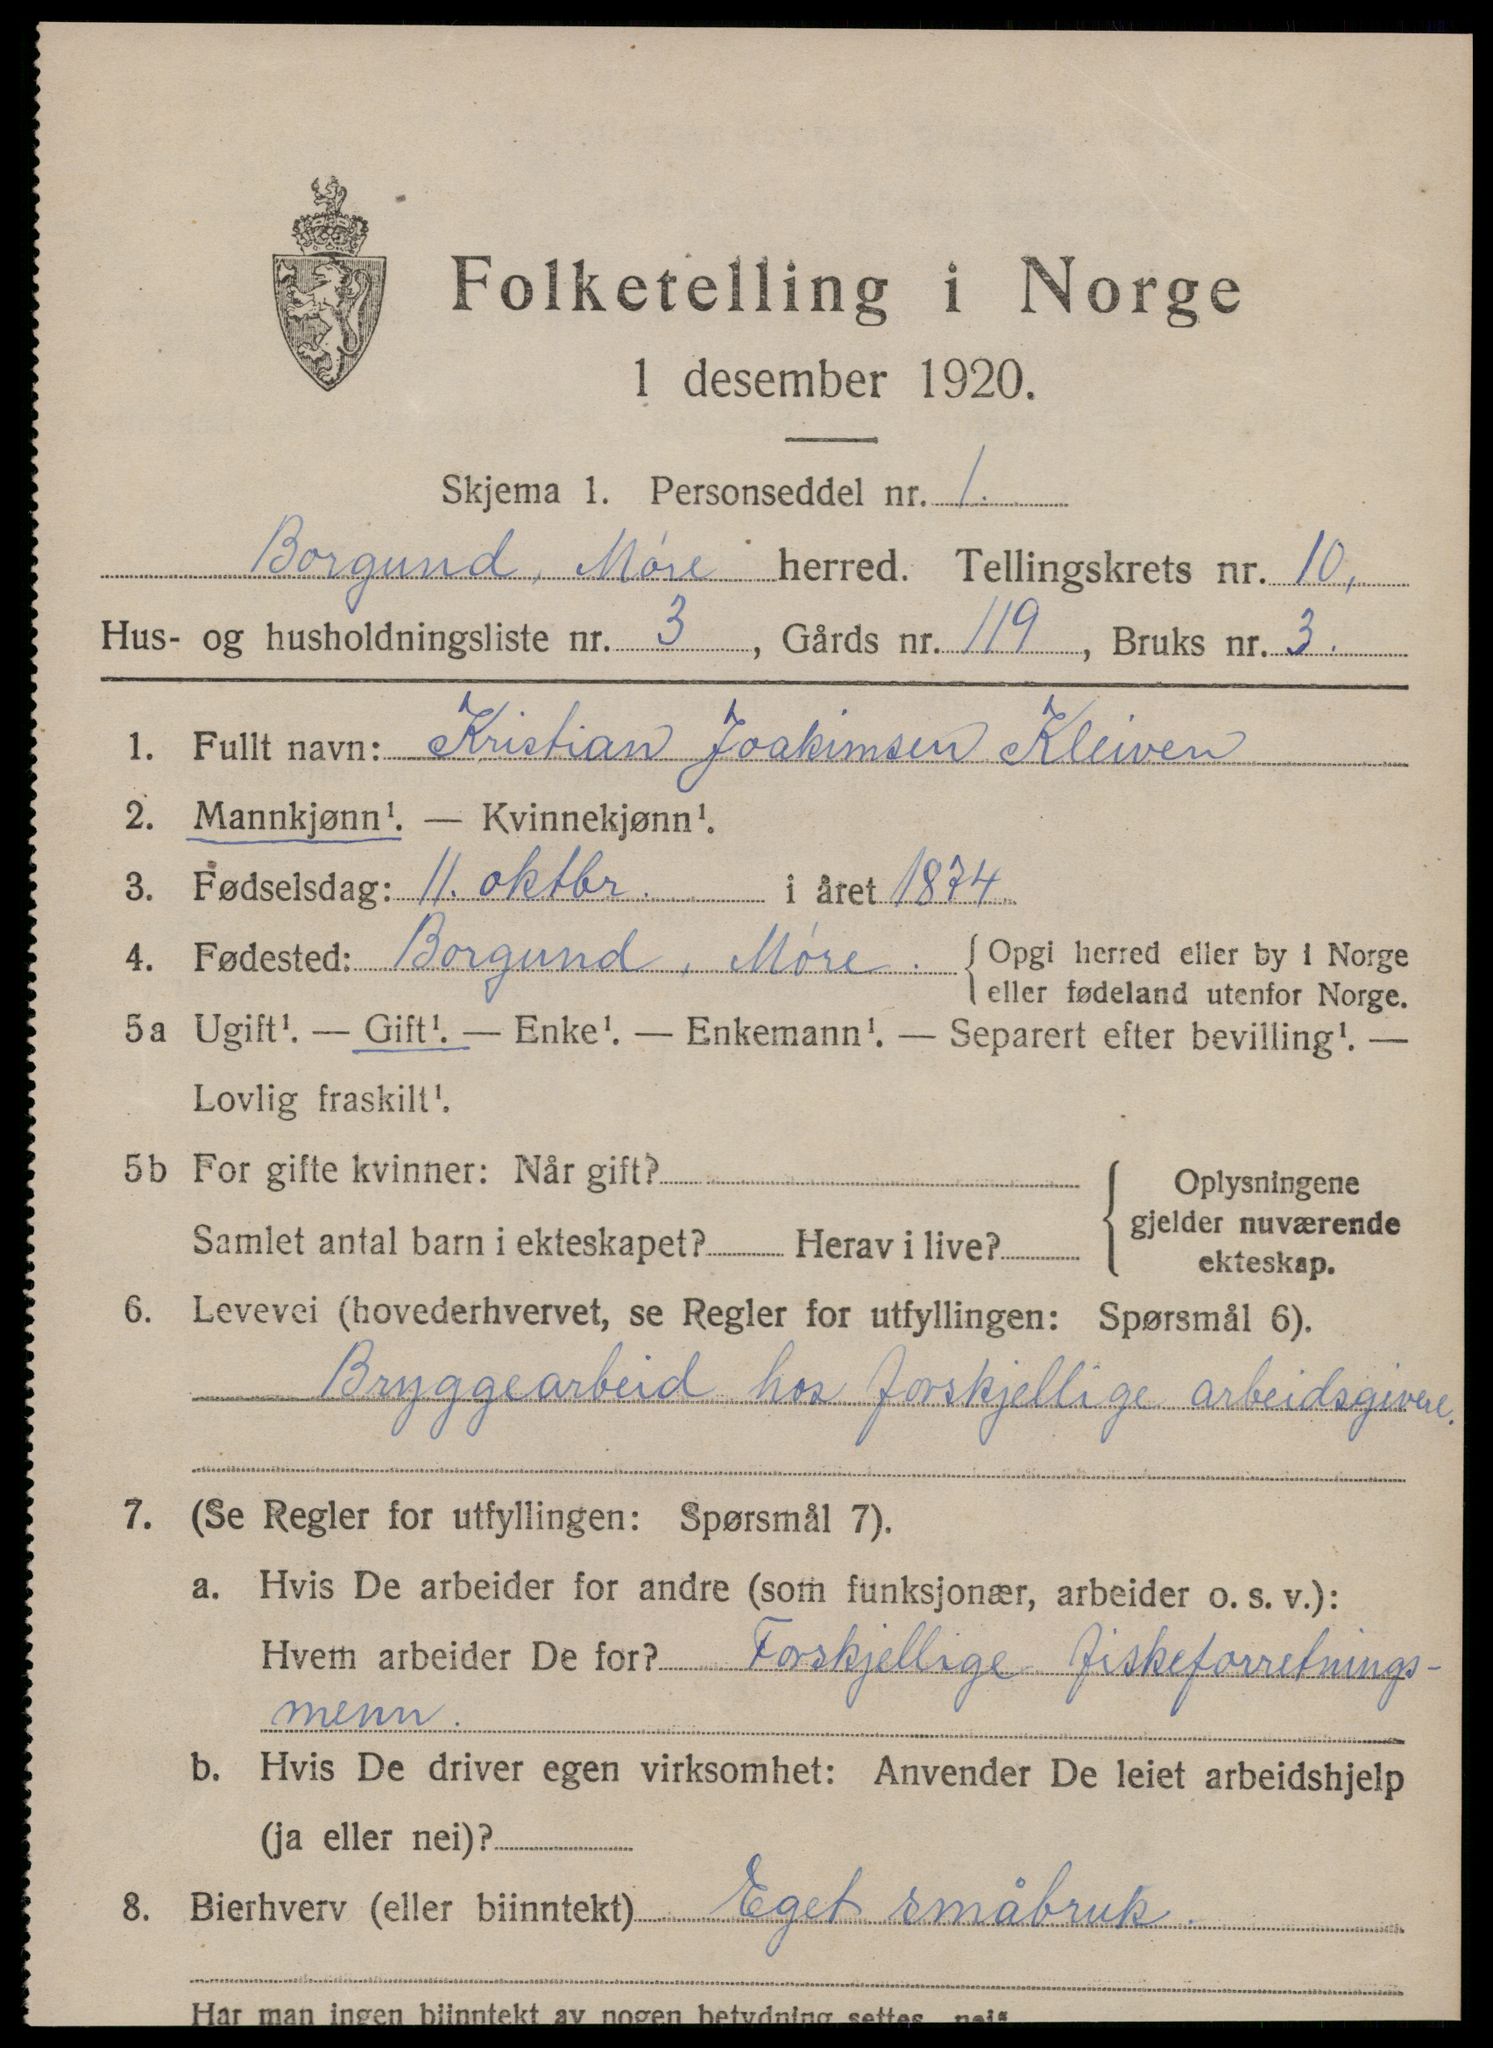 Folketelling i Norge
1 desember 1920.
Skjema 1. Personseddel nr. 1.
Borgund, Møre herred. Tellingskrets nr. 10,
Hus- og husholdningsliste nr. 3, Gårds nr. 119, Bruks nr. 3.
1. Fullt navn: Kristian Joakimsen Kleiven
2. Mannkjønn¹. — Kvinnekjønn¹.
3. Fødselsdag: 11. oktbr. i året 1874.
4. Fødested: Borgund, Møre. { Opgi herred eller by i Norge
eller fødeland utenfor Norge.
5a Ugift¹. — Gift¹. — Enke¹. — Enkemann¹. — Separert efter bevilling¹. —
Lovlig fraskilt¹.
5b For gifte kvinner: Når gift?
Samlet antal barn i ekteskapet? Herav i live?
Oplysningene
gjelder nuværende
ekteskap.
6. Levevei (hovederhvervet, se Regler for utfyllingen: Spørsmål 6).
Bryggearbeid hos forskjellige arbeidsgivere.
7. (Se Regler for utfyllingen: Spørsmål 7).
a. Hvis De arbeider for andre (som funksjonær, arbeider o. s. v.):
Hvem arbeider De for? Forskjellige fiskeforretnings-
menn.
b. Hvis De driver egen virksomhet: Anvender De leiet arbeidshjelp
(ja eller nei)?
8. Bierhverv (eller biinntekt) Eget småbruk.
Har man ingen biinntekt av nogen betydning settes